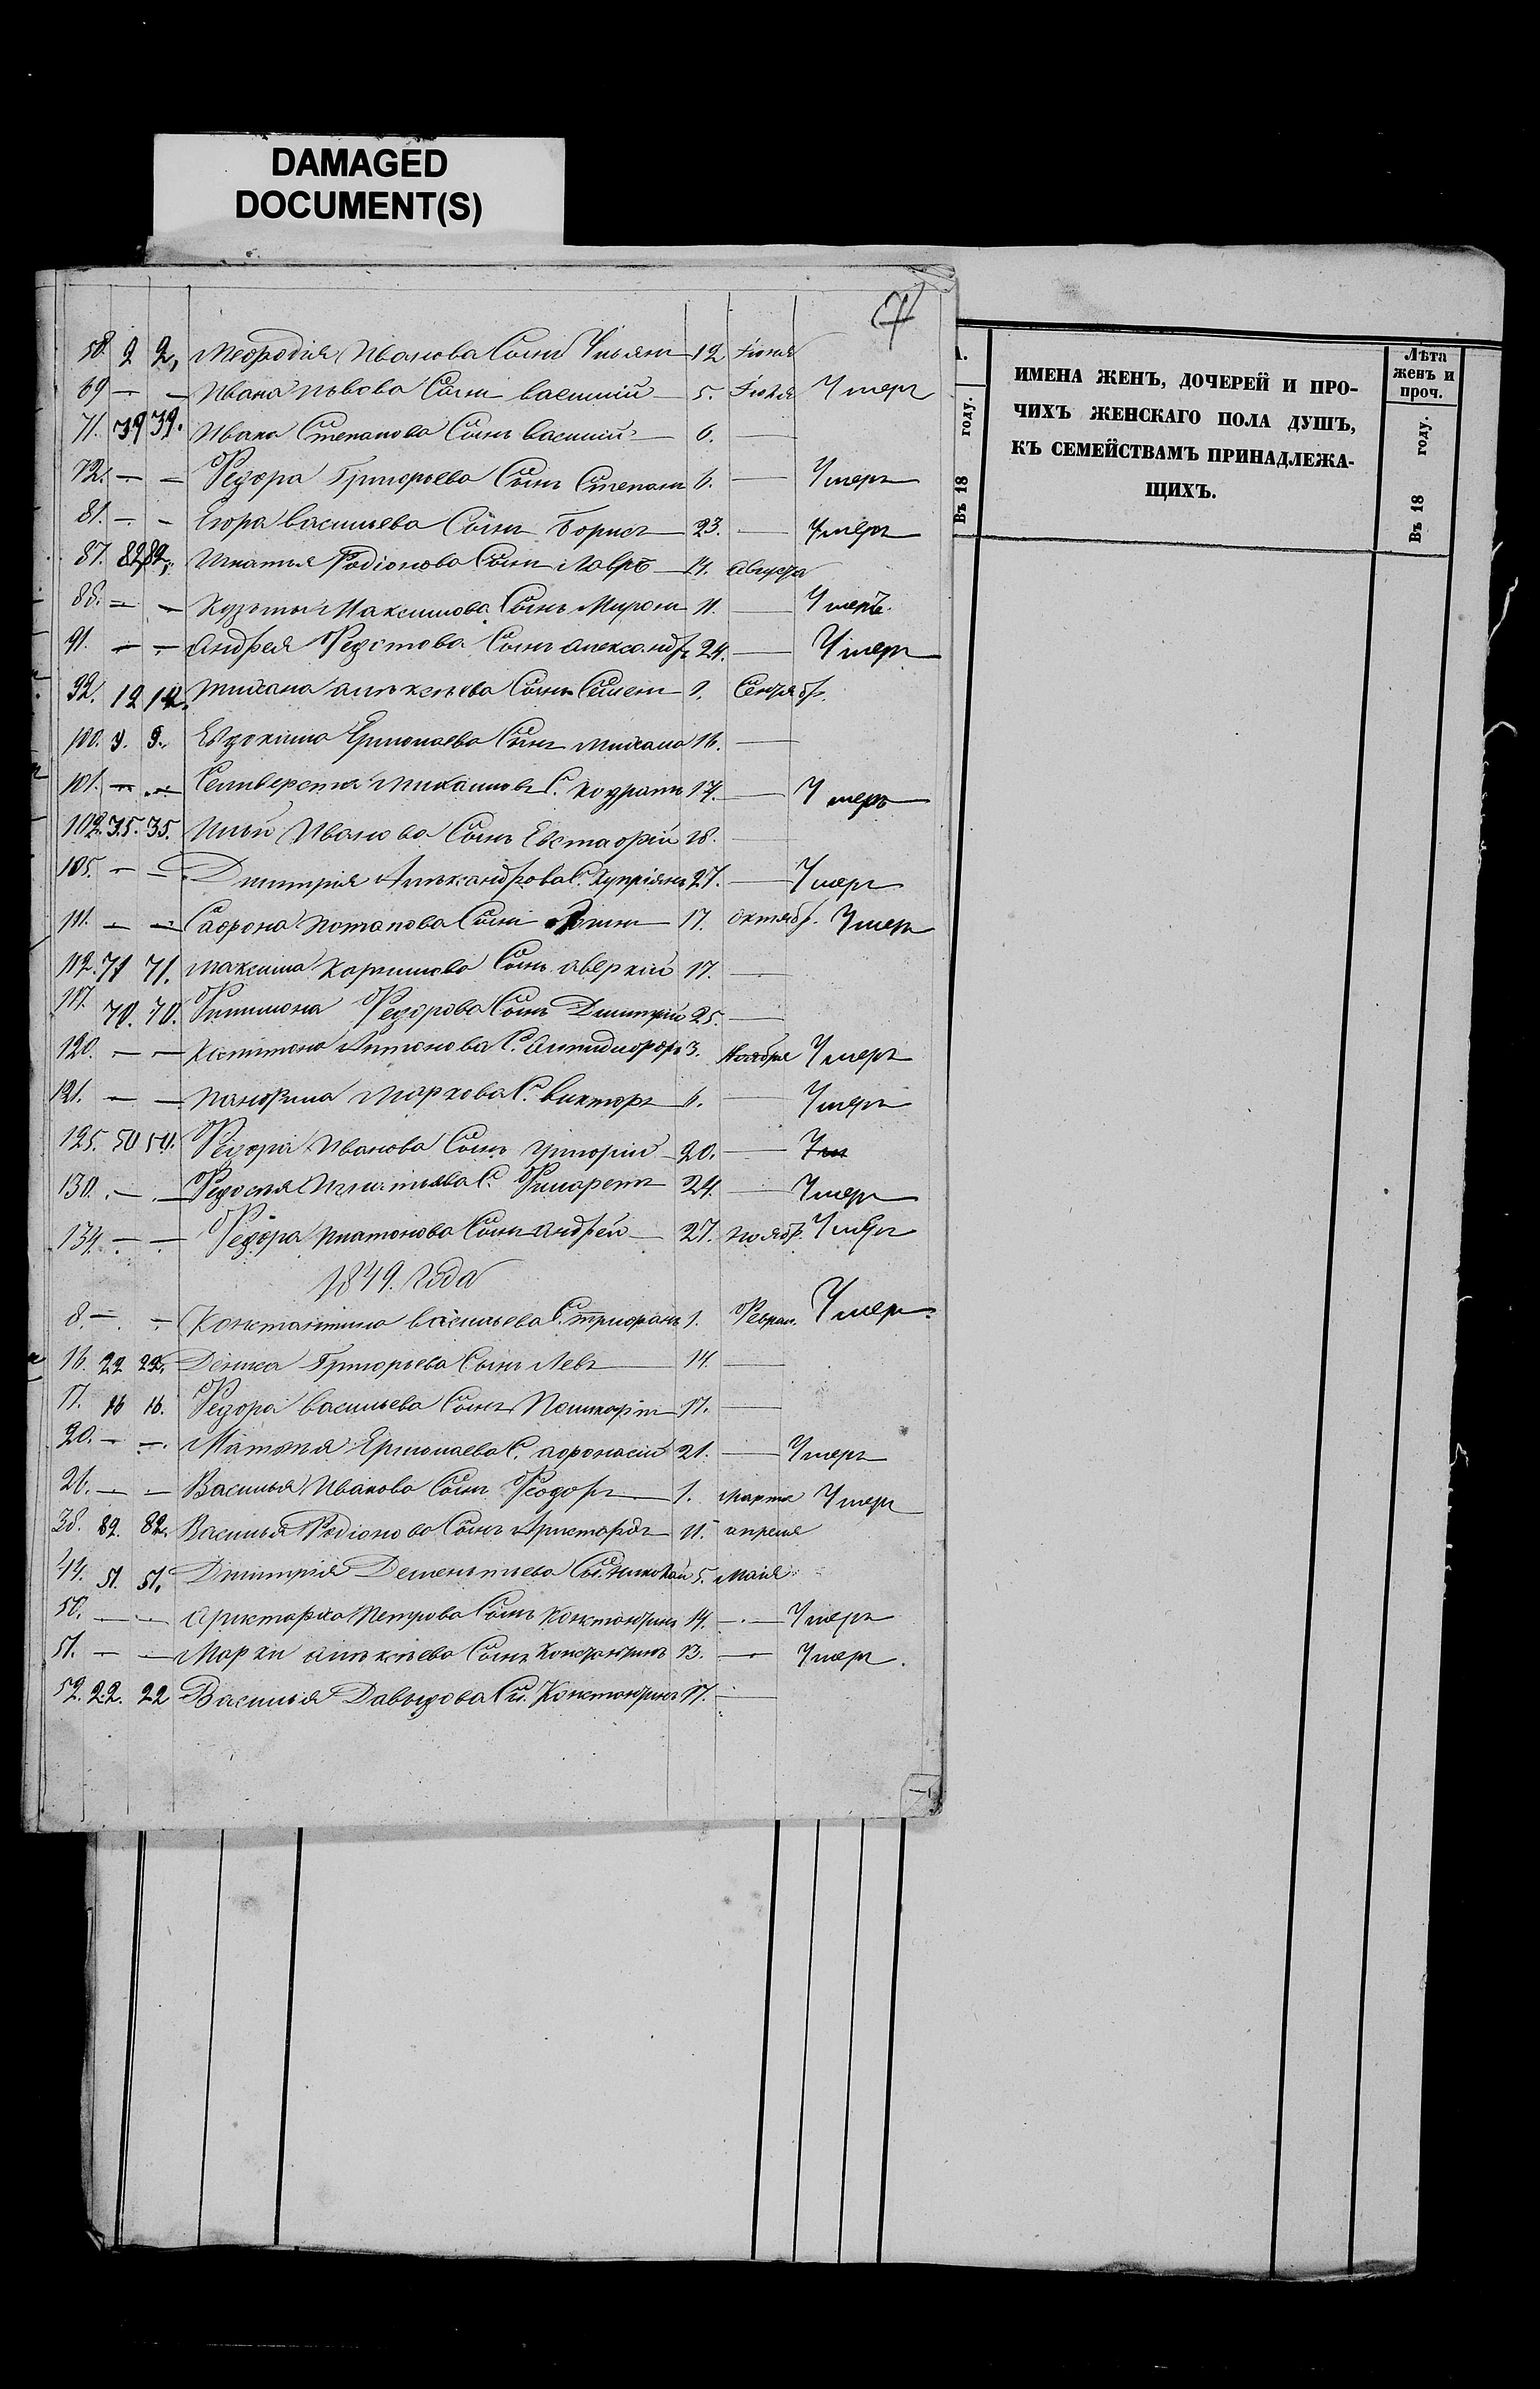 DAMAGED
DOCUMENT(S)
58. 2 2, Меѳодія Иванова Сынъ Ульянъ 12 Іюня
69 — — Ивана Львова Сынъ василій 5. Іюля Умеръ
71. 39 39. Ивана Степанова Сынъ василій 6. —
72. — — Ѳедора Григорьева Сынъ Степанъ 6. — Умеръ
81. — — Егора васильева Сынъ Борисъ 23. — Умеръ
87. 82 82, Игнатья Родіонова Сынъ Лавръ 14. августа
88. — — Кузьмы Максимова Сынъ Миронъ 11. — Умеръ.
91. — — андрея Ѳедотова Сынъ александръ 24. — Умеръ
92. 12 12. михаила алексѣева Сынъ Семенъ 1. Сентябр.
100. 9. 9. Евдокима Ермолаева Сынъ михаилъ 16. —
101. — — Селиверста михаилова С. кодратъ 17. — Умеръ
102. 35. 35. Ильи Иванова Сынъ Евстафій 18. —
105. — — Дмитрія Алѣксандрова С. Купріянъ 27. — Умеръ
111. — — Сафрона потапова Сынъ 17. октябр. Умеръ
112. 71 71. максима Карпилова Сынъ аверкій 17. —
117. 70. 70. Филимона Ѳедорова Сынъ Дмитрій 25. —
120. — — Капитона Антонова С. 3. Ноября Умеръ
121. — — панѳила Маркова С. викторъ 6. — Умеръ
125. 50 50. Ѳедора Иванова Сынъ Григорій 20. — Ум
130. — — Ѳедосѣя Игнатьева С. Филаретъ 24. — Умеръ
134. — — Ѳедора платонова Сынъ андрей — 27. ноябр. Умеръ
1849. года
8. — — Константина васильева С. трифонъ 1. Феврал. Умеръ.
16. 22 22. Дениса Григорьева Сынъ Левъ 14. —
17. 16 16. Ѳедора васильева Сынъ Поликарпъ 17. —
20. — — Матвѣя Ермолаева С. афонасій 21. — Умеръ
26. — — Василья Иванова Сынъ Ѳеодоръ 1. марта Умеръ
38. 82. 82. Василья Родіонова Сынъ Аристархъ 11. апреля
44. 51. 51. Дмитрія Дементьева Сы. николай 5. маія
50. — — аристарха Петрова Сынъ Константинъ 14. — Умеръ
51. — — Марки алѣксѣева Сынъ Константинъ 13. — Умеръ.
52. 22. 22 Василья Давыдова Сы. Константинъ 17. —
ИМЕНА ЖЕНЪ, ДОЧЕРЕЙ И ПРО-
ЧИХЪ ЖЕНСКАГО ПОЛА ДУШЪ,
КЪ СЕМЕЙСТВАМЪ ПРИНАДЛЕЖА-
ЩИХЪ.
Въ 18 году.
Лѣта
женъ и
проч.
Въ 18 году.